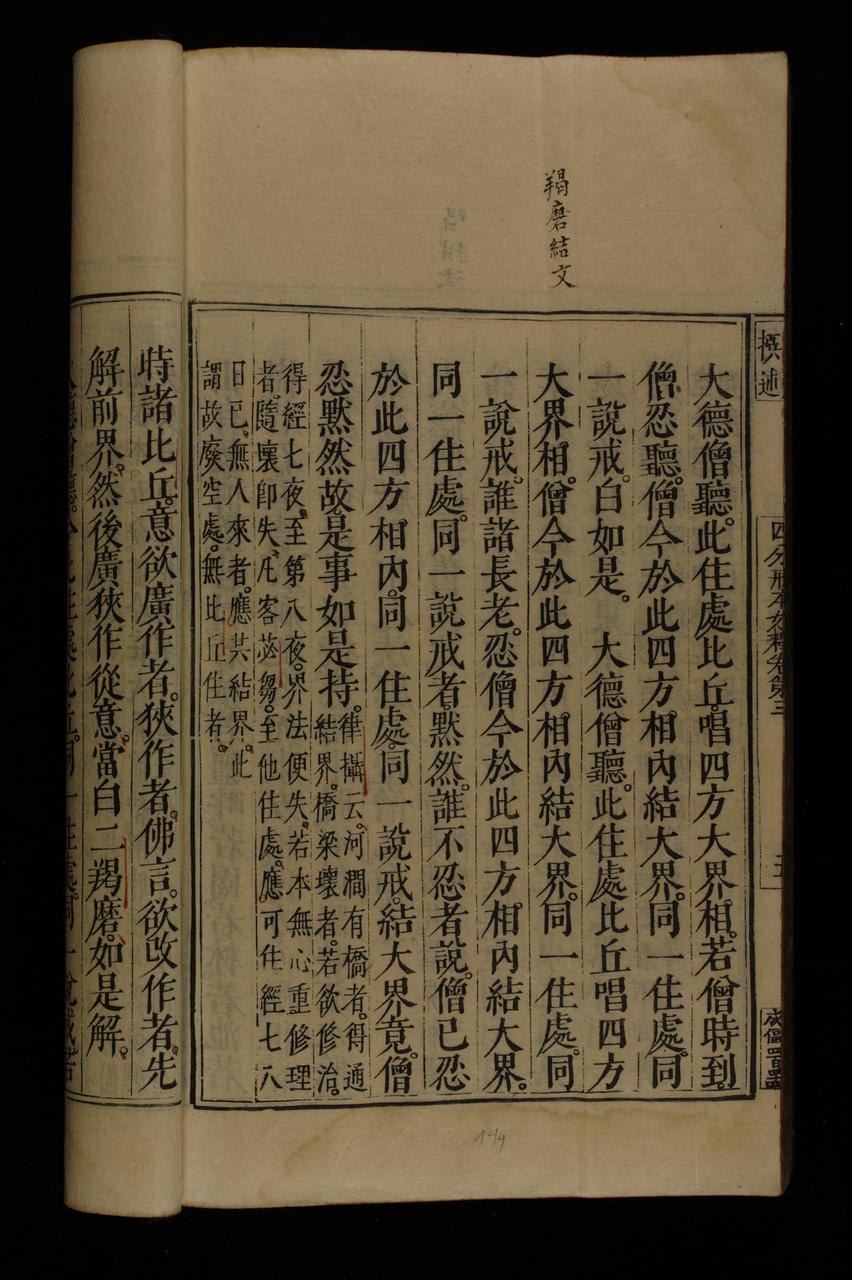 撰述
四分戒本如釋卷第三
五
羯磨結文
大德僧聽。此住處比丘。唱四方大界相。若僧時到。
僧忍聽。僧今於此四方相內結大界。同一住處。同
一說戒。白如是。　大德僧聽。此住處比丘唱四方
大界相。僧今於此四方相內結大界。同一住處。同
一說戒。誰諸長老。忍僧今於此四方相內結大界。
同一住處。同一說戒者。默然。誰不忍者說。僧已忍
於此四方相內。同一住處。同一說戒。結大界竟。僧
忍默然故。是事如是持。
律攝云。河澗有橋者。得通
結界。橋梁壞者。若欲修治。
得經七夜。至第八夜。界法便失。若本無心重修理
者。隨壞即失。凡客苾芻。至他住處。應可住經七八
日已。無人來者。應共結界。此
謂故廢空處。無比丘住者。
時諸比丘。意欲廣作者。狹作者。佛言。欲改作者。先
解前界。然後廣狹作從意。當白二羯磨。如是解。
199